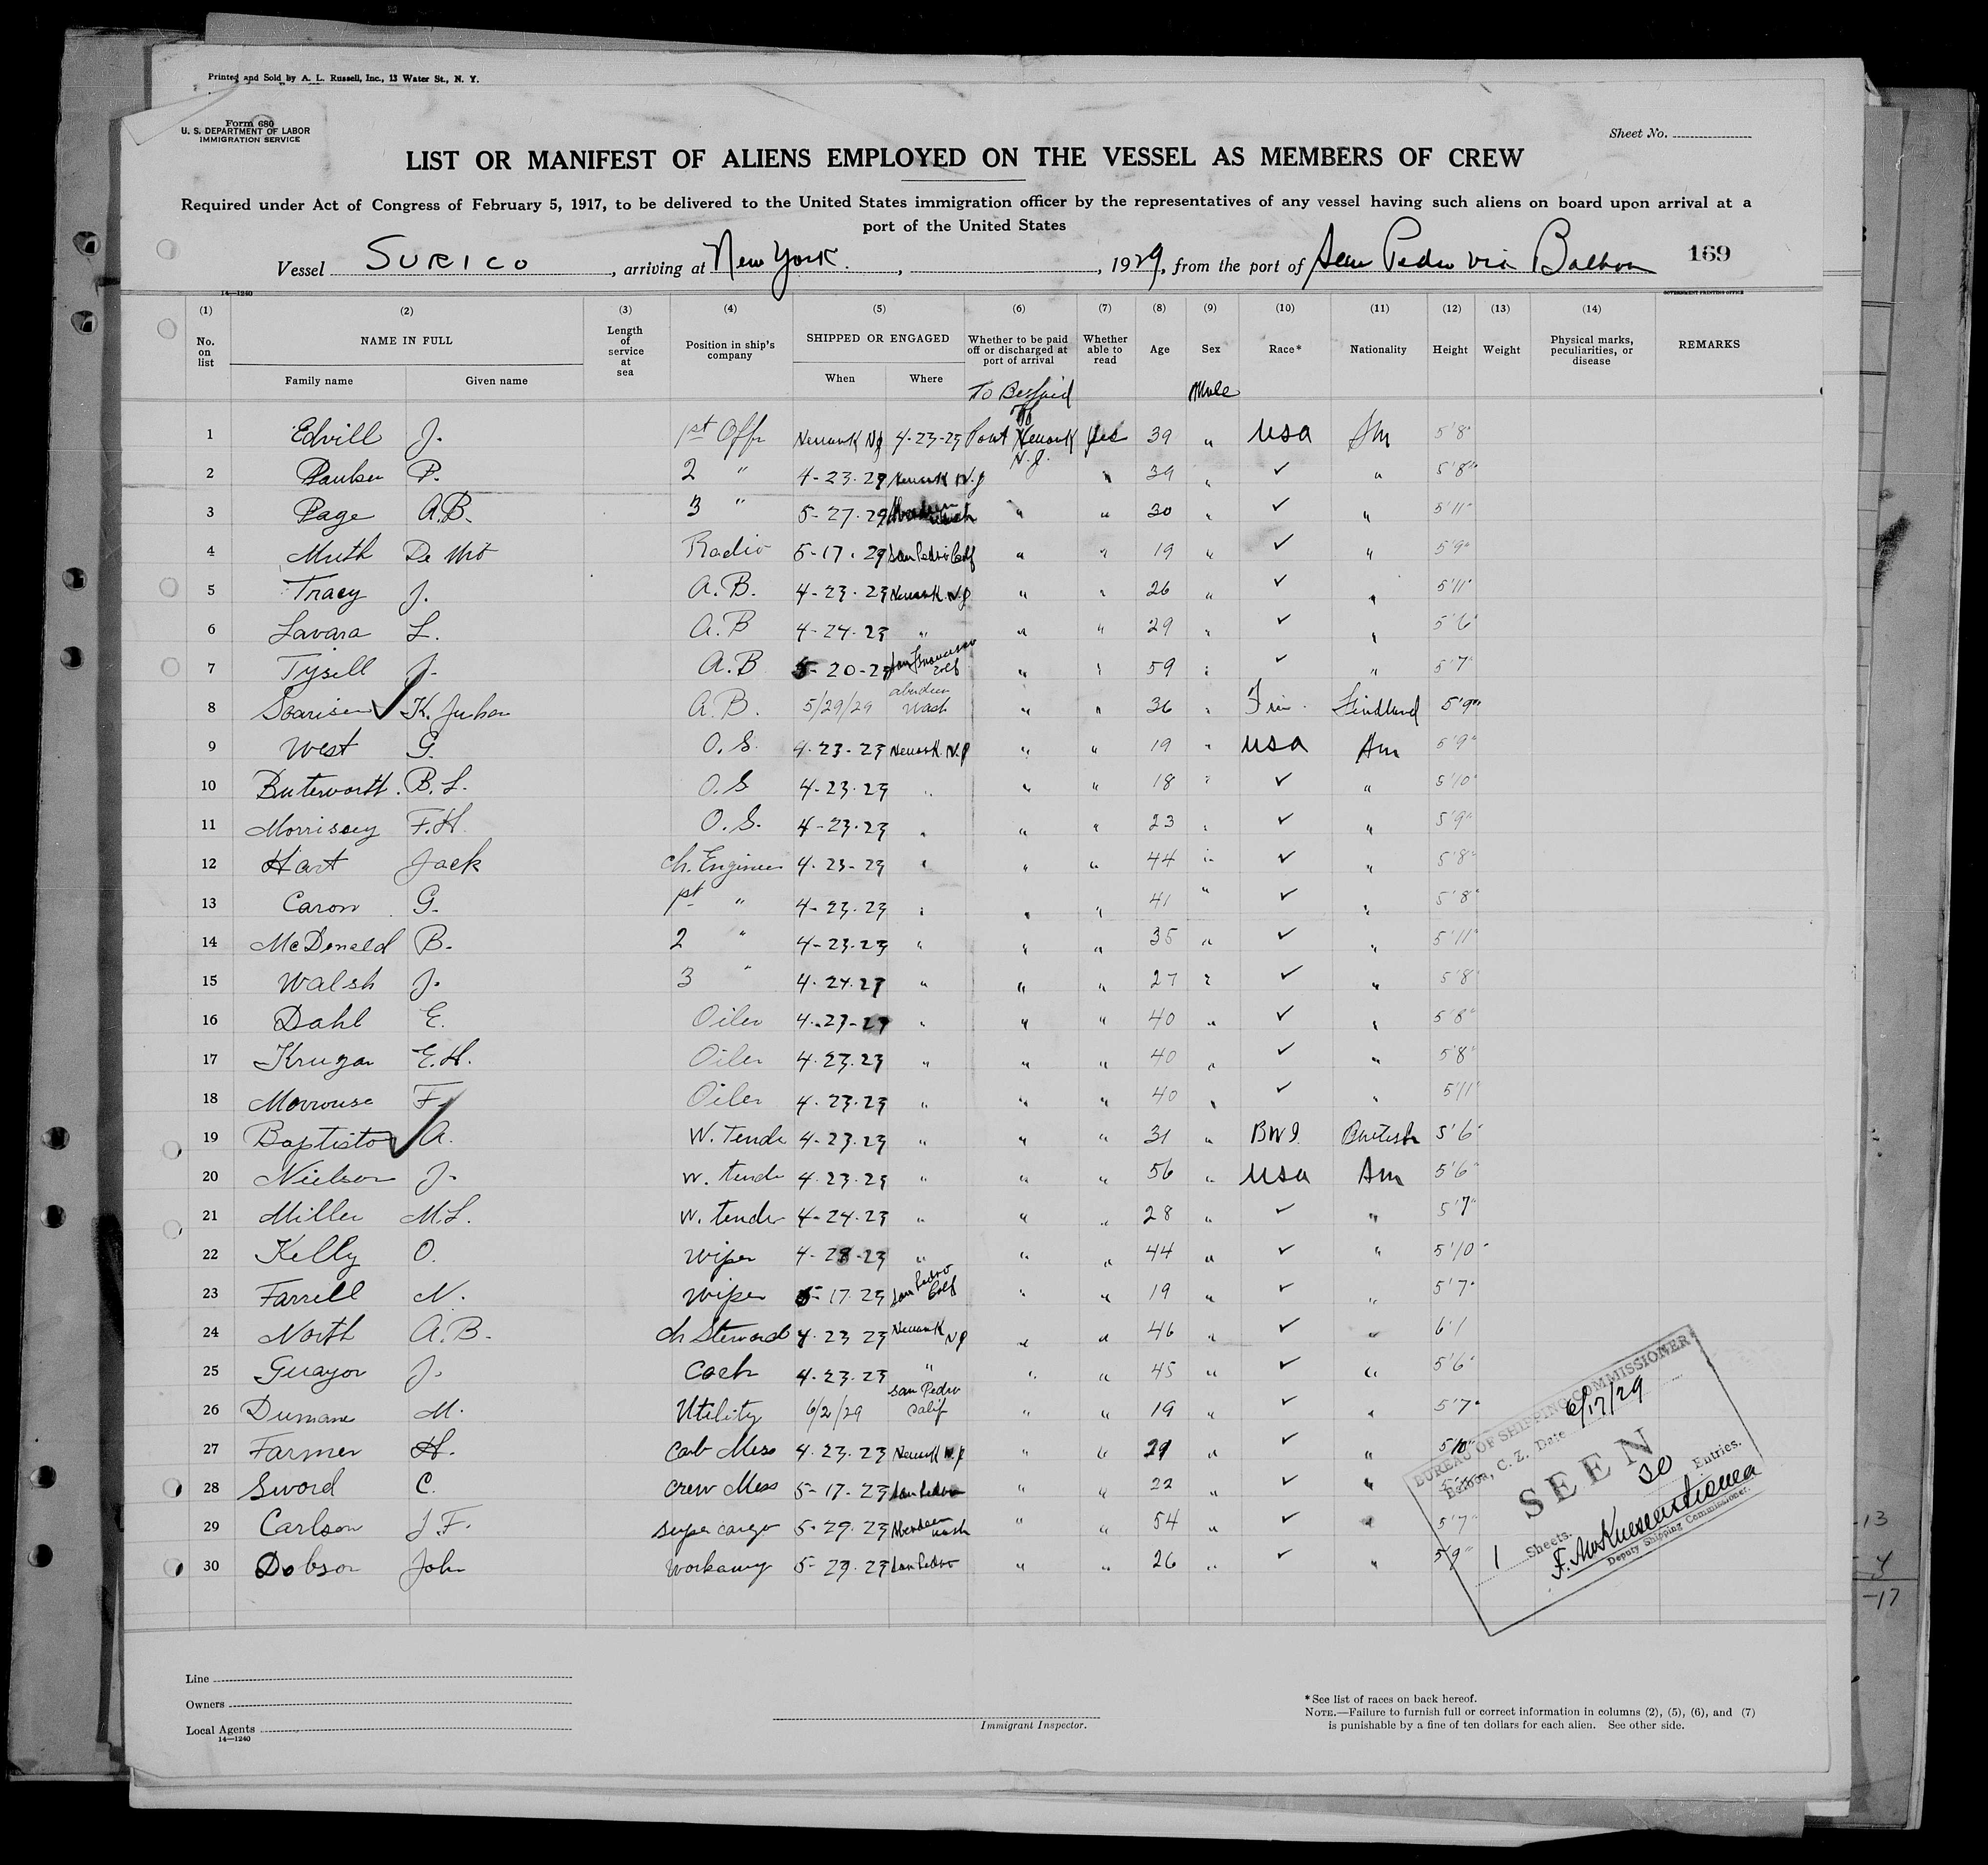 Printed and Sold by A. L. Russell, Inc., 13 Water St., N. Y.
Form 680
U. S. DEPARTMENT OF LABOR
IMMIGRATION SERVICE
Sheet No.
LIST OR MANIFEST OF ALIENS EMPLOYED ON THE VESSEL AS MEMBERS OF CREW
Required under Act of Congress of February 5, 1917, to be delivered to the United States immigration officer by the representatives of any vessel having such aliens on board upon arrival at a
port of the United States
Vessel SURICO, arriving at New York, 1929, from the port of San Pedro via Balboa 169
14—1240 GOVERNMENT PRINTING OFFICE
(1) (2) (3) (4) (5) (6) (7) (8) (9) (10) (11) (12) (13) (14)
No. on list NAME IN FULL Length of service at sea Position in ship's company SHIPPED OR ENGAGED Whether to be paid off or discharged at port of arrival Whether able to read Age Sex Race* Nationality Height Weight Physical marks, peculiarities, or disease REMARKS
Family name Given name When Where
To Be Paid Male
off
1 Edvill J. 1st Offr Newark NJ 4-23-29 Port Newark Yes 39 " USA Am 5'8"
N.J.
2 P. 2 " 4-23-29 Newark N.J 39 " ✓ " 5'8"
3 Page A.B. 3 " 5-27-29 Aberdeen Wash " " 30 " ✓ " 5'11"
4 Muth Radio 5-17-29 San Pedro Calf " " 19 " ✓ " 5'9"
5 Tracy J. A.B. 4-23-29 Newark N.J " " 26 " ✓ " 5'11"
6 Lavara L. A.B 4-24-29 " " " 29 " ✓ " 5'6"
7 Tysell J. A.B 5-20-29 San Francisco Calf " " 59 " ✓ " 5'7"
8 K. Juhan A.B. 5/29/29 aberdeen Wash " " 36 " Fin. Findland 5'9"
9 West G. O.S. 4-23-29 Newark N.J " " 19 " USA Am 5'9"
10 Buterworth. B.L. O.S 4-23-29 " " " 18 " ✓ " 5'10"
11 Morrisey F.H. O.S. 4-23-29 " " " 23 " ✓ " 5'9"
12 Hart Jack ch. Engineer 4-23-29 " " " 44 " ✓ " 5'8"
13 Caron G. 1st " 4-23-29 " " " 41 " ✓ " 5'8"
14 McDonald B. 2 " 4-23-29 " " " 35 " ✓ " 5'11"
15 Walsh J. 3 " 4-24-29 " " " 27 " ✓ " 5'8"
16 Dahl E. Oiler 4-23-29 " " " 40 " ✓ " 5'8"
17 Krugar E.H. Oiler 4-23-29 " " " 40 " ✓ " 5'8"
18 F. Oiler 4-23-29 " " " 40 " ✓ " 5'11
19 Baptista A. W. Tende 4-23-29 " " " 31 " BWI. British 5'6"
20 Nielson J. W. tende 4-23-29 " " " 56 " USA Am 5'6"
21 Miller M.L. W. tender 4-24-29 " " " 28 " ✓ " 5'7"
22 Kelly O. Wiper 4-28-29 " " " 44 " ✓ " 5'10"
23 Farrell N. Wiper 5-17-29 San Pedro Calf " " 19 " ✓ " 5'7"
24 North A.B. ch Steward 4-23-29 Newark NJ " " 46 " ✓ " 6'1
25 Guayor J. Cook 4-23-29 " " " 45 " ✓ " 5'6"
26 M. Utility 6/2/29 San Pedro Calif " " 19 " ✓ " 5'7"
27 Farmer H. Cab Mess 4-23-29 Newark N.J " " 29 " ✓ " 5'10"
28 Sword C. Crew Mess 5-17-29 San Pedro " " 22 " ✓ "
29 Carlson J.F. Super cargo 5-29-29 Aberdeen Wash " " 54 " ✓ " 5'7"
30 Dobson John Workaway 5-29-29 San Pedro " " 26 " ✓ " 5'9"
BUREAU OF SHIPPING COMMISSIONER
Balboa, C. Z., Date 6/17/29
SEEN
1 Sheets. 30 Entries.
Deputy Shipping Commissioner.
-13
-17
Line
Owners
Local Agents
14—1240
Immigrant Inspector.
*See list of races on back hereof.
NOTE.—Failure to furnish full or correct information in columns (2), (5), (6), and (7)
is punishable by a fine of ten dollars for each alien. See other side.